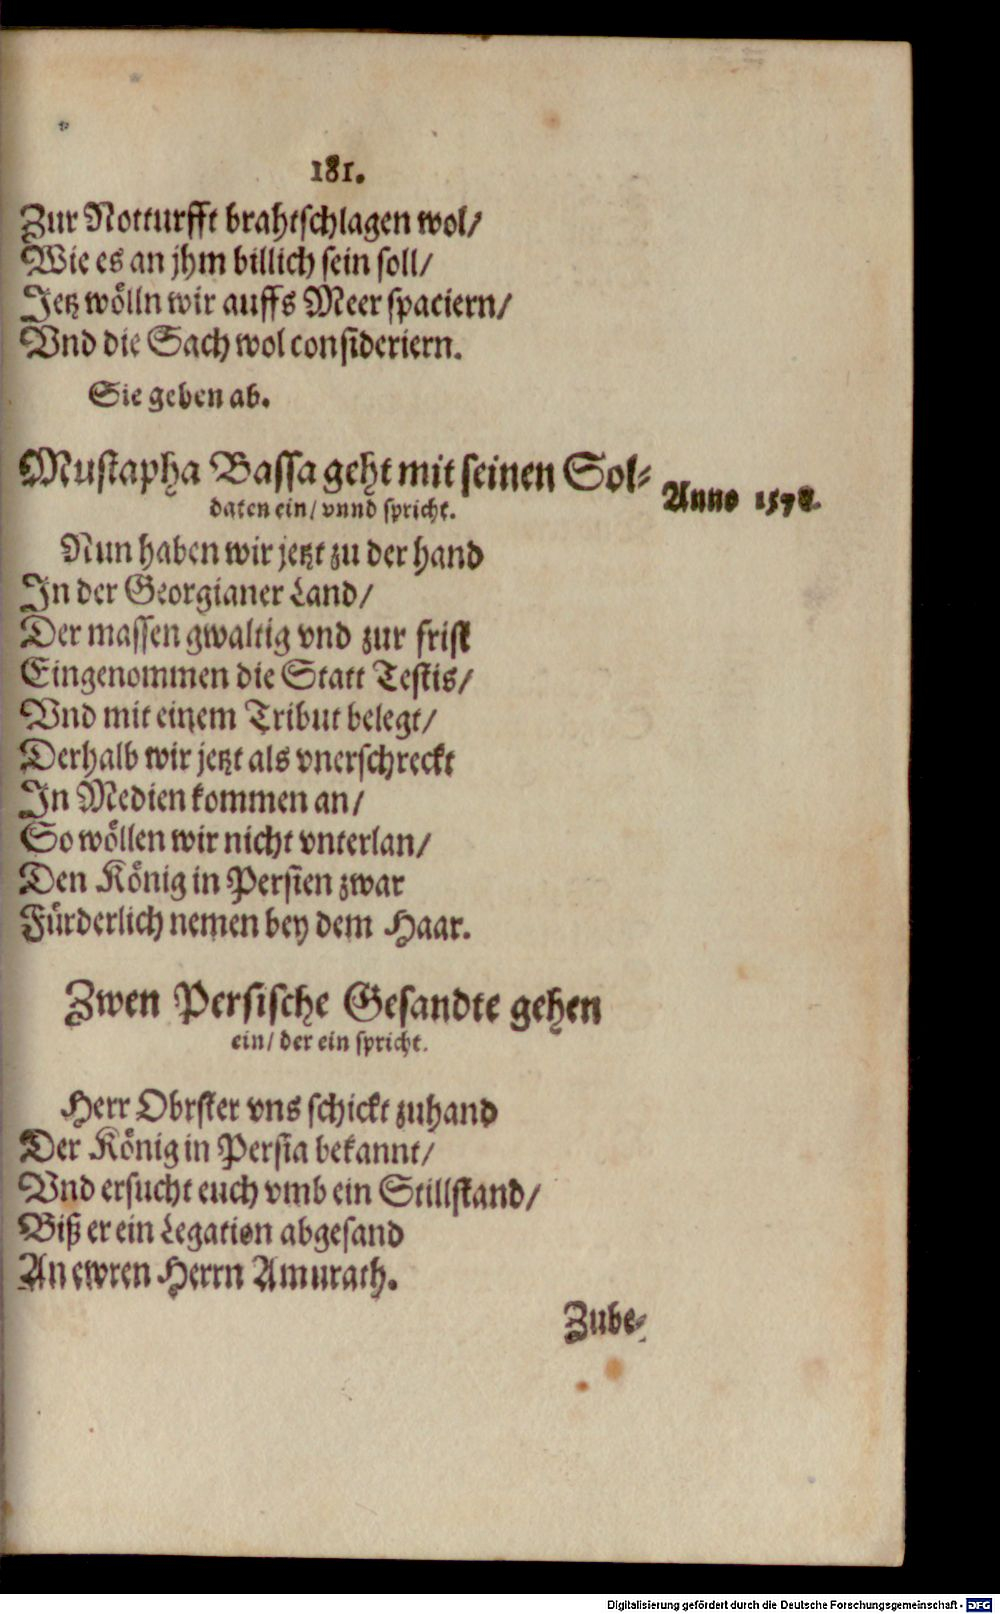 181.
Zur Notturfft brahtschlagen wol/
Wie es an jhm billich sein soll/
Jetz wölln wir auffs Meer spaciern/
Vnd die Sach wol consideriern.
Sie gehen ab.
Mustapha Bassa geht mit seinen Sol-
daten ein/ vnnd spricht.
Anno 1578.
Nun haben wir jetzt zu der hand
In der Georgianer Land/
Der massen gwaltig vnd zur frist
Eingenommen die Statt Testis/
Vnd mit einem Tribut belegt/
Derhalb wir jetzt als vnerschreckt
In Medien kommen an/
So wöllen wir nicht vnterlan/
Den König in Persien zwar
Fürderlich nemen bey dem Haar.
Zwen Persische Gesandte gehen
ein/ der ein spricht.
Herr Obrster vns schickt zuhand
Der König in Persia bekannt/
Vnd ersucht euch vmb ein Stillstand/
Biß er ein Legation abgesand
An ewren Herrn Amurath.
Zube-
Digitalisierung gefördert durch die Deutsche Forschungsgemeinschaft - DFG